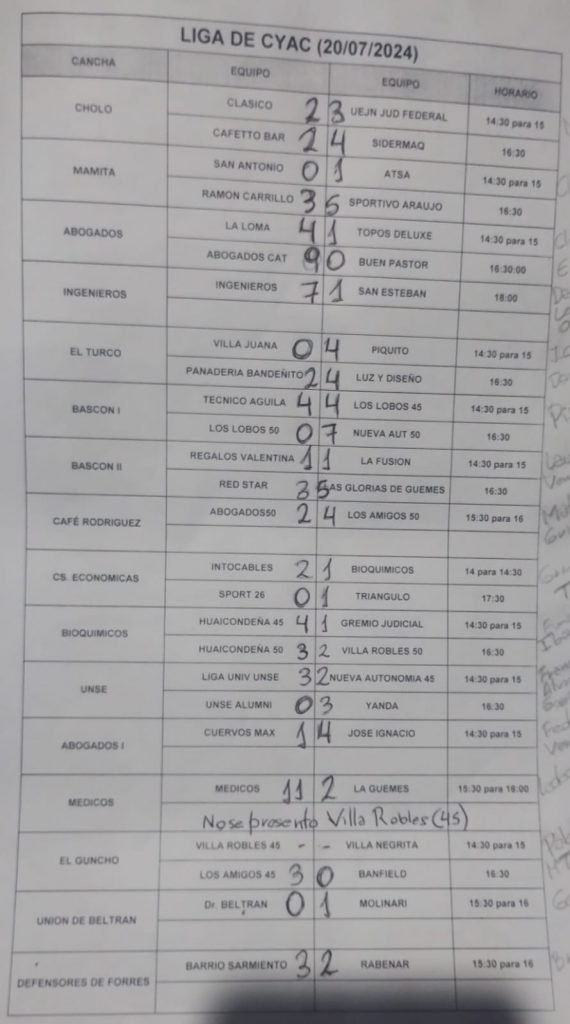 LIGA DE CYAC (20/07/2024)
CANCHA EQUIPO EQUIPO HORARIO
CHOLO CLASICO 2 3 UEJN JUD FEDERAL 14:30 para 15
CAFETTO BAR 2 4 SIDERMAQ 16:30
MAMITA SAN ANTONIO 0 1 ATSA 14:30 para 15
RAMON CARRILLO 3 5 SPORTIVO ARAUJO 16:30
ABOGADOS LA LOMA 4 1 TOPOS DELUXE 14:30 para 15
ABOGADOS CAT 9 0 BUEN PASTOR 16:30:00
INGENIEROS INGENIEROS 7 1 SAN ESTEBAN 16:00
EL TURCO VILLA JUANA 0 4 PIQUITO 14:30 para 15
PANADERIA BANDEÑITO 2 4 LUZ Y DISEÑO 16:30
BASCON I TECNICO AGUILA 4 4 LOS LOBOS 45 14:30 para 15
LOS LOBOS 50 0 7 NUEVA AUT 50 16:30
BASCON II REGALOS VALENTINA 1 1 LA FUSION 14:30 para 15
RED STAR 3 5 AS GLORIAS DE GUEMES 16:30
CAFÉ RODRIGUEZ ABOGADOS50 2 4 LOS AMIGOS 50 15:30 para 16
CS. ECONOMICAS INTOCABLES 2 1 BIOQUIMICOS 14 para 14:30
SPORT 26 0 1 TRIANGULO 17:30
BIOQUIMICOS HUAICONDEÑA 45 4 1 GREMIO JUDICIAL 14:30 para 15
HUAICONDEÑA 50 3 2 VILLA ROBLES 50 16:30
UNSE LIGA UNIV UNSE 3 2 NUEVA AUTONOMIA 45 14:30 para 15
UNSE ALUMNI 0 3 YANDA 16:30
ABOGADOS I CUERVOS MAX 1 4 JOSE IGNACIO 14:30 para 15
MEDICOS MEDICOS 11 2 LA GUEMES 15:30 para 16:00
No se presento Villa Robles (45)
EL GUNCHO VILLA ROBLES 45 - - VILLA NEGRITA 14:30 para 15
LOS AMIGOS 45 3 0 BANFIELD 16:30
UNION DE BELTRAN Dr. BELTRAN 0 1 MOLINARI 15:30 para 16
DEFENSORES DE FORRES BARRIO SARMIENTO 3 2 RABENAR 15:30 para 16